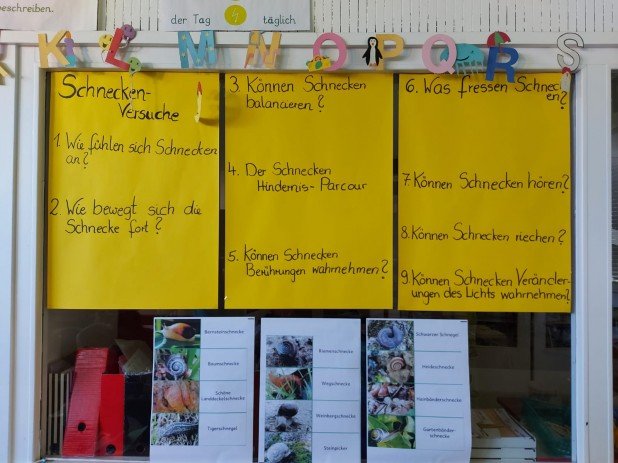 beschreiben.
der Tag täglich
K L M N O P Q R S
Schnecken-
Versuche
1. Wie fühlen sich Schnecken
an?
2. Wie bewegt sich die
Schnecke fort?
3. Können Schnecken
balancieren?
4. Der Schnecken
Hindernis-Parcour
5. Können Schnecken
Berührungen wahrnehmen?
6. Was fressen Schneck
en?
7. Können Schnecken hören?
8. Können Schnecken riechen?
9. Können Schnecken Veränder-
ungen des Lichts wahrnehmen?
Bernsteinschnecke
Baumschnecke
Schöne
Landdeckelschnecke
Tigerschnegel
Riemenschnecke
Wegschnecke
Weinbergschnecke
Steinpicker
Schwarzer Schnegel
Heideschnecke
Hainbänderschnecke
Gartenbänder-
schnecke